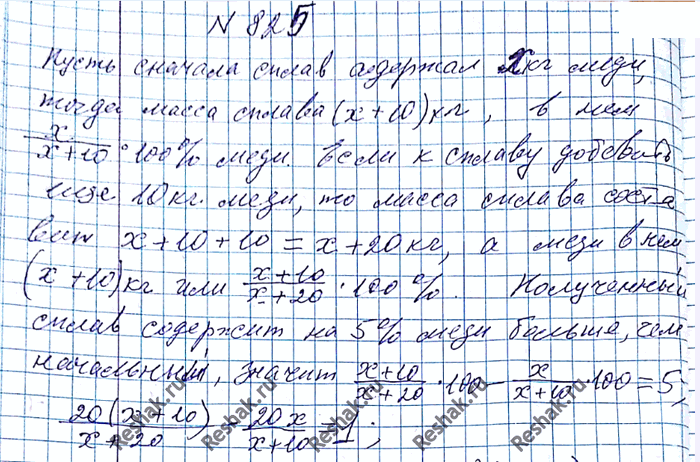 N 825
Пусть сначала сплав содержал x кг меди,
тогда масса сплава (x+10) кг, в нем
x/(x+10) · 100% меди. Если к сплаву добавить
еще 10 кг. меди, то масса сплава соста
вит x+10+10 = x+20 кг, а меди в нем
(x+10) кг или (x+10)/(x+20) · 100%. Полученный
сплав содержит на 5% меди больше, чем
начальный, значит (x+10)/(x+20) · 100 - x/(x+10) · 100 = 5,
20(x+10)/(x+20) - 20x/(x+10) = 1;
Reshak.ru Reshak.ru Reshak.ru Reshak.ru